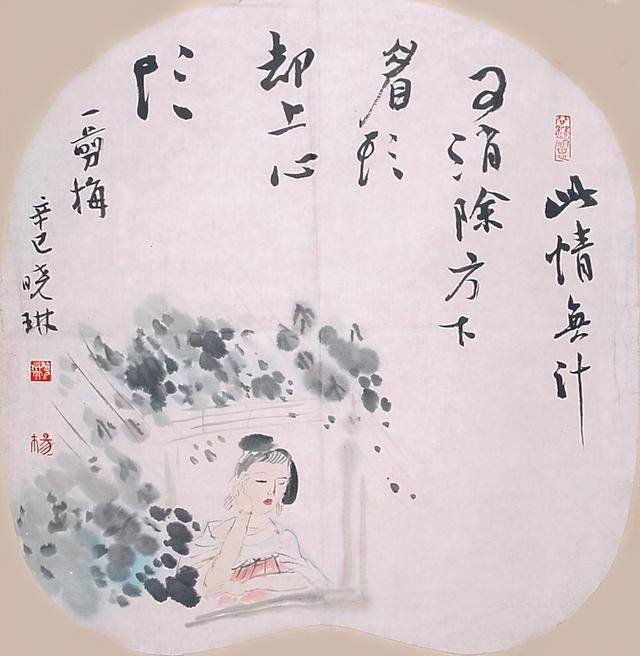 此情無計
可消除方下
眉頭
却上心
頭
一剪梅
辛巳晓琳
杨